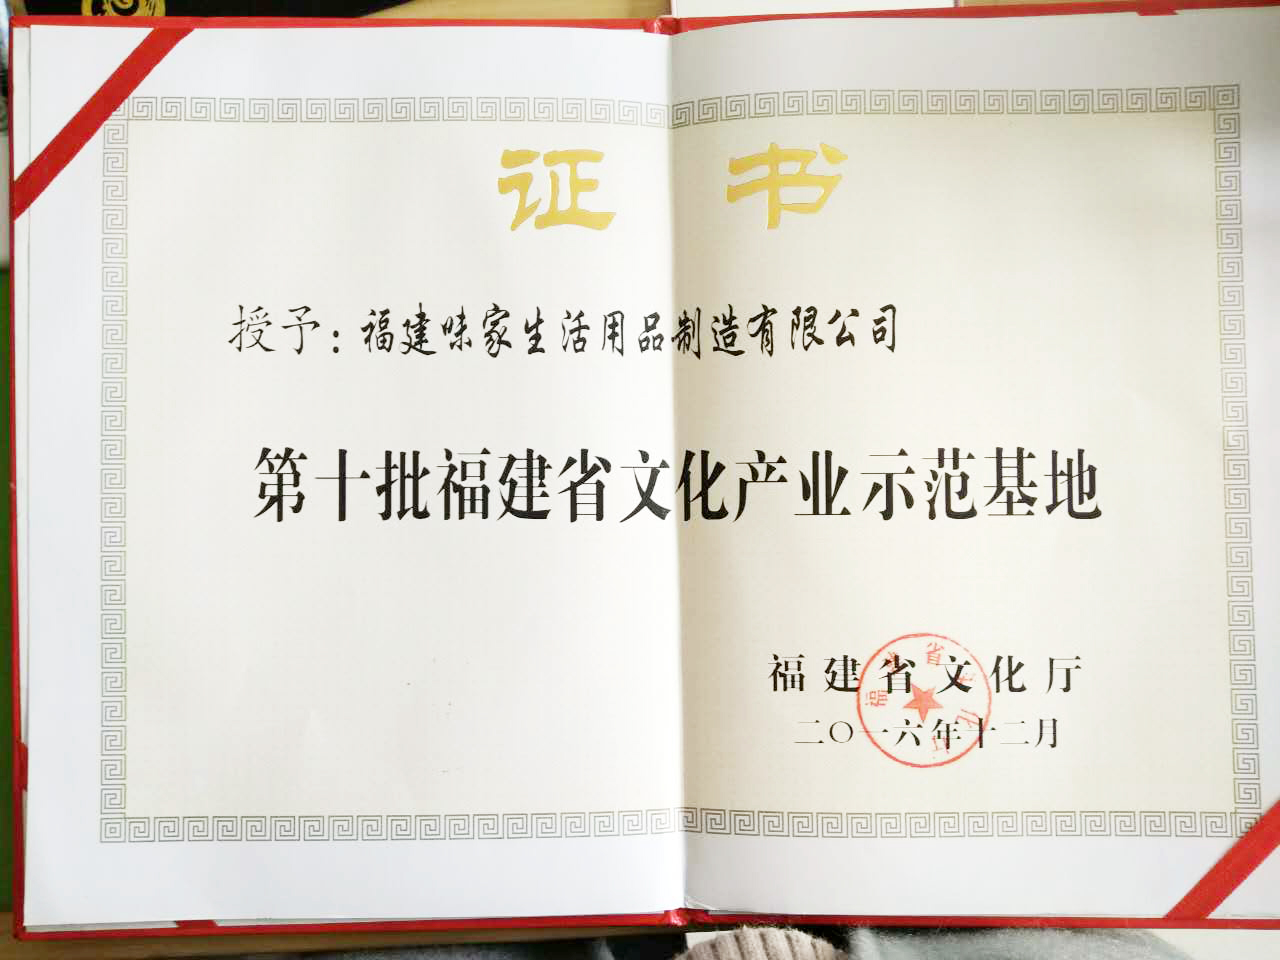 证书
授予：福建味家生活用品制造有限公司
第十批福建省文化产业示范基地
福建省文化厅
二〇一六年十二月
福建省文化厅